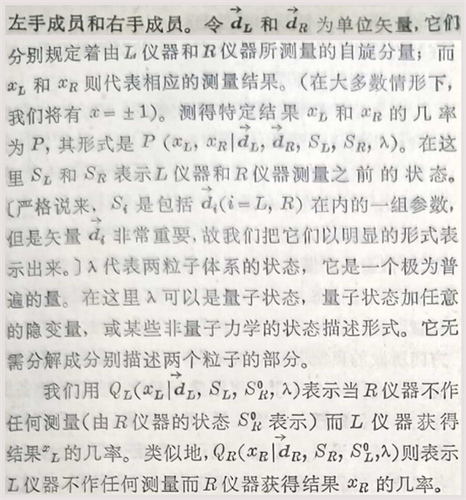 左手成员和右手成员。令 d⃗_L 和 d⃗_R 为单位矢量,它们
分别规定着由 L 仪器和 R 仪器所测量的自旋分量;而
x_L 和 x_R 则代表相应的测量结果。(在大多数情形下,
我们将有 x=±1)。测得特定结果 x_L 和 x_R 的几率
为 P,其形式是 P (x_L, x_R|d⃗_L, d⃗_R, S_L, S_R, λ)。在这
里 S_L 和 S_R 表示 L 仪器和 R 仪器测量之前的状态。
〔严格说来,S_i 是包括 d⃗_i(i=L, R) 在内的一组参数,
但是矢量 d⃗_i 非常重要,故我们把它们以明显的形式表
示出来。〕λ 代表两粒子体系的状态,它是一个极为普
遍的量。在这里 λ 可以是量子状态,量子状态加任意
的隐变量,或某些非量子力学的状态描述形式。它无
需分解成分别描述两个粒子的部分。
我们用 Q_L(x_L|d⃗_L, S_L, S_R^0, λ)表示当 R 仪器不作
任何测量(由 R 仪器的状态 S_R^0 表示)而 L 仪器获得
结果 x_L 的几率。类似地,Q_R(x_R|d⃗_R, S_R, S_L^0,λ)则表示
L 仪器不作任何测量而 R 仪器获得结果 x_R 的几率。